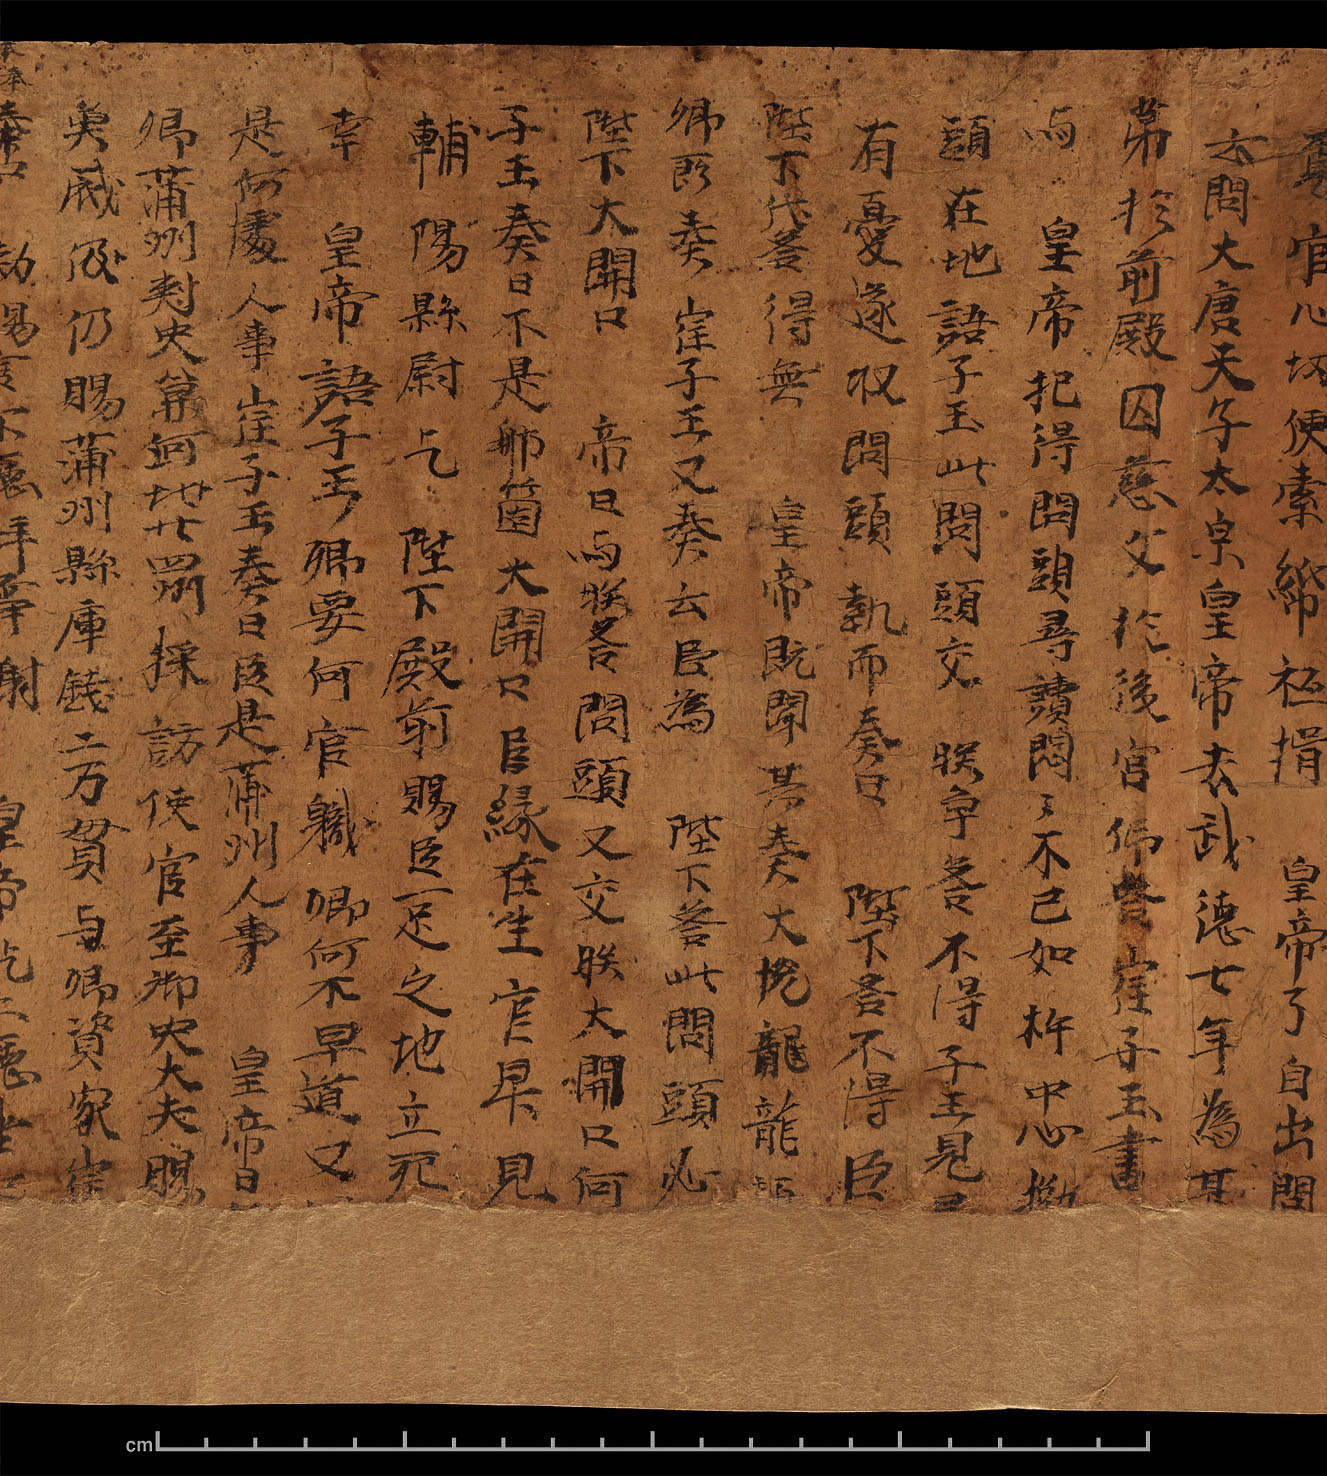 官心切便索紙祗揖　皇帝了自出問
云問大唐天子太宗皇帝去武德七年為甚
弟於前殿囚慈父於後宮仰荅崔子玉書
与　皇帝把得問頭尋讀悶〻不已如杵中心
頭在地語子玉此問頭交朕争荅不得子玉見
有憂遂収問頭執而奏曰　陛下荅不得臣
陛下代荅得無　皇帝既聞其奏大悅龍龍
卿即奏崔子玉又奏云臣為　陛下荅此問頭必
陛下大開口　帝曰与朕荅問頭又交朕大開口何
子玉奏曰不是那箇大開口臣緣在生官卑見
輔陽縣尉乞　陛下殿前賜臣一足之地立死
幸　皇帝語子玉卿要何官軄卿何不早道又
是何處人事崔子玉奏曰臣是蒲州人事　皇帝曰
卿蒲州刺史兼河北廿四州採訪使官至御史大夫賜
仍賜蒲州縣庫錢二万貫与卿資家崔